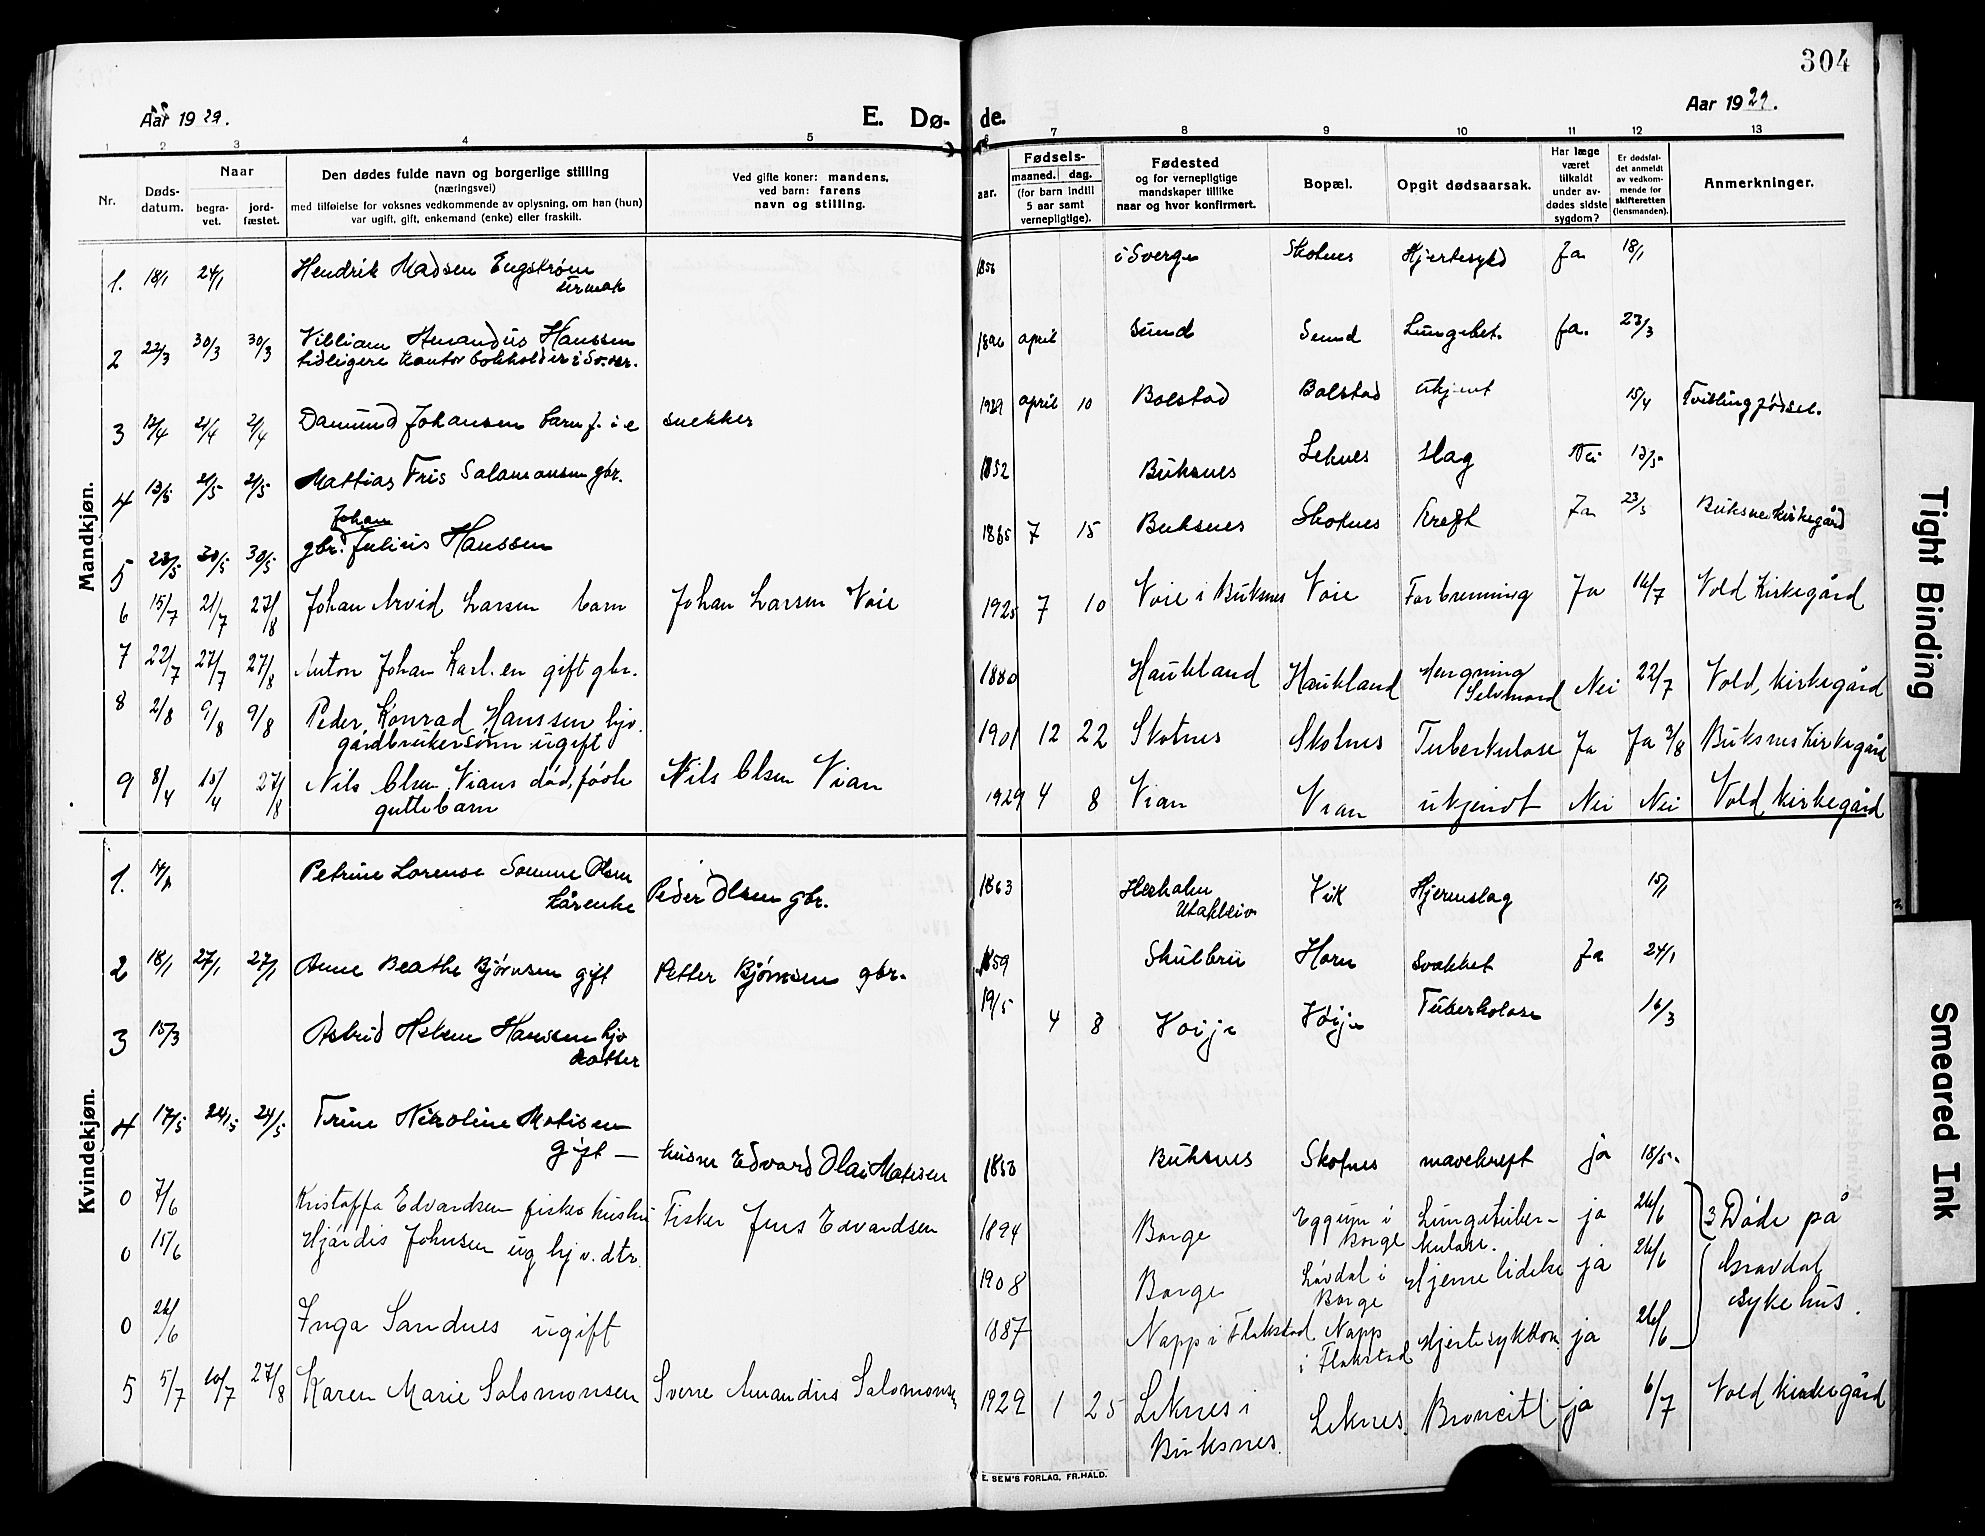 304
Aar 1929.
E. Dø-
de.
Aar 1929.
1 2 3 4 5 6 7 8 9 10 11 12 13
Nr.
Døds-
datum.
Naar
begra-
vet.
jord-
fæstet.
Den dødes fulde navn og borgerlige stilling
(næringsvei)
med tilføielse for voksnes vedkommende av oplysning, om han (hun)
var ugift, gift, enkemand (enke) eller fraskilt.
Ved gifte koner: mandens,
ved barn: farens
navn og stilling.
Fødsels-
aar. maaned. dag.
(for barn indtil
5 aar samt
vernepligtige).
Fødested
og for vernepligtige
mandskaper tillike
naar og hvor konfirmert.
Bopæl.
Opgit dødsaarsak.
Har læge
været
tilkaldt
under av-
dødes sidste
sygdom?
Er dødsfal-
det anmeldt
av vedkom-
mende for
skifteretten
(lensmanden).
Anmerkninger.
Mandkjøn.
1. 18/1 24/1 Hendrik Madsen Engstrøm 1856 i Sverge Skotnes Hjertesykd Ja 18/1
2 22/3 30/3 30/3 Villiam Amandus Hanssen 1896 april Sund Sund Lungebet. Ja. 23/3
tidligere kontor bokholder i Svver.
3 12/4 21/4 21/4 Damund Johansen barn f. i e snekker 1929 april 10 Bolstad Bolstad ukjent 15/4 Tvillingfødsel.
4 13/5 21/5 21/5 Mattias Fris Salamonsen gbr. 1852 Buksnes Leknes Slag Nei 13/5
Johan
5 23/5 30/5 30/5 gbr. Julius Hanssen 1865 7 15 Buksnes Skotnes Kreft Ja 23/5 Buksnes Kirkegård
6 15/7 21/7 27/8 Johan Arvid Larsen barn Johan Larsen Voie 1925 7 10 Voie i Buksnes Voie Forbrenning Ja 16/7 Vold Kirkegård
7 22/7 27/7 27/8 Anton Johan Karl.en gift gbr. 1880 Haukland Haukland Hengning Nei 22/7 Vold, Kirkegård
Selvmord
8 2/8 9/8 9/8 Peder Konrad Hanssen hjv. 1901 12 22 Skotnes Skotnes Tuberkulose Ja Ja 3/8 Buksnes Kirkegård
gårdbrukersønn ugift
9 8/4 15/4 27/8 Nils Olsen Vians død,føde Nils Olsen Vian 1929 4 8 Vian Vian ukjendt Nei Nei Vold Kirkegård
guttebarn
Kvindekjøn.
1. 14/1 Petrine Lorense Somme Olsen Peder Olsen gbr. 1863 Herholm Vik Hjerneslag 15/1
kårenke Utakleiv
2 18/1 27/1 27/1 Anne Beathe Bjørnsen gift Petter Bjørnsen gbr. 1859 Skulbru Horn svakhet Ja 24/1
3 15/3 Astrid Helene Hanssen hjv 1915 4 8 Voije Voije Tuberkolose 16/3
datter
4 17/5 24/5 24/5 Trine Nikoline Matisen
gift — husm Edvard Olai Matisen 1853 Buksnes Skotnes mavekreft ja 18/5
0 7/6 Kristoffa Edvardsen fisker hustru Fisker Jens Edvardsen 1894 Borge Eggum i Borge Lungetuber-kulose. ja 26/6 3 Døde på
0 15/6 Hjørdis Johnsen ug hjv. dtr. 1908 Borge Løvdal i Borge Hjerne lidelse ja 26/6 Gravdal
0 26/6 Inga Sandnes ugift 1887 Napp i Flakstad Napp i Flakstad Hjertesykdom ja 26/6 sykehus.
5 5/7 10/7 27/8 Karen Marie Solomonsen Sverre Amandus Salomonsen 1929 1 25 Leknes i Buksnes. Leknes. Broncitt ja 6/7 Vold Kirkegård
E. SEM'S FORLAG, FR.HALD.
Tight Binding
Smeared Ink